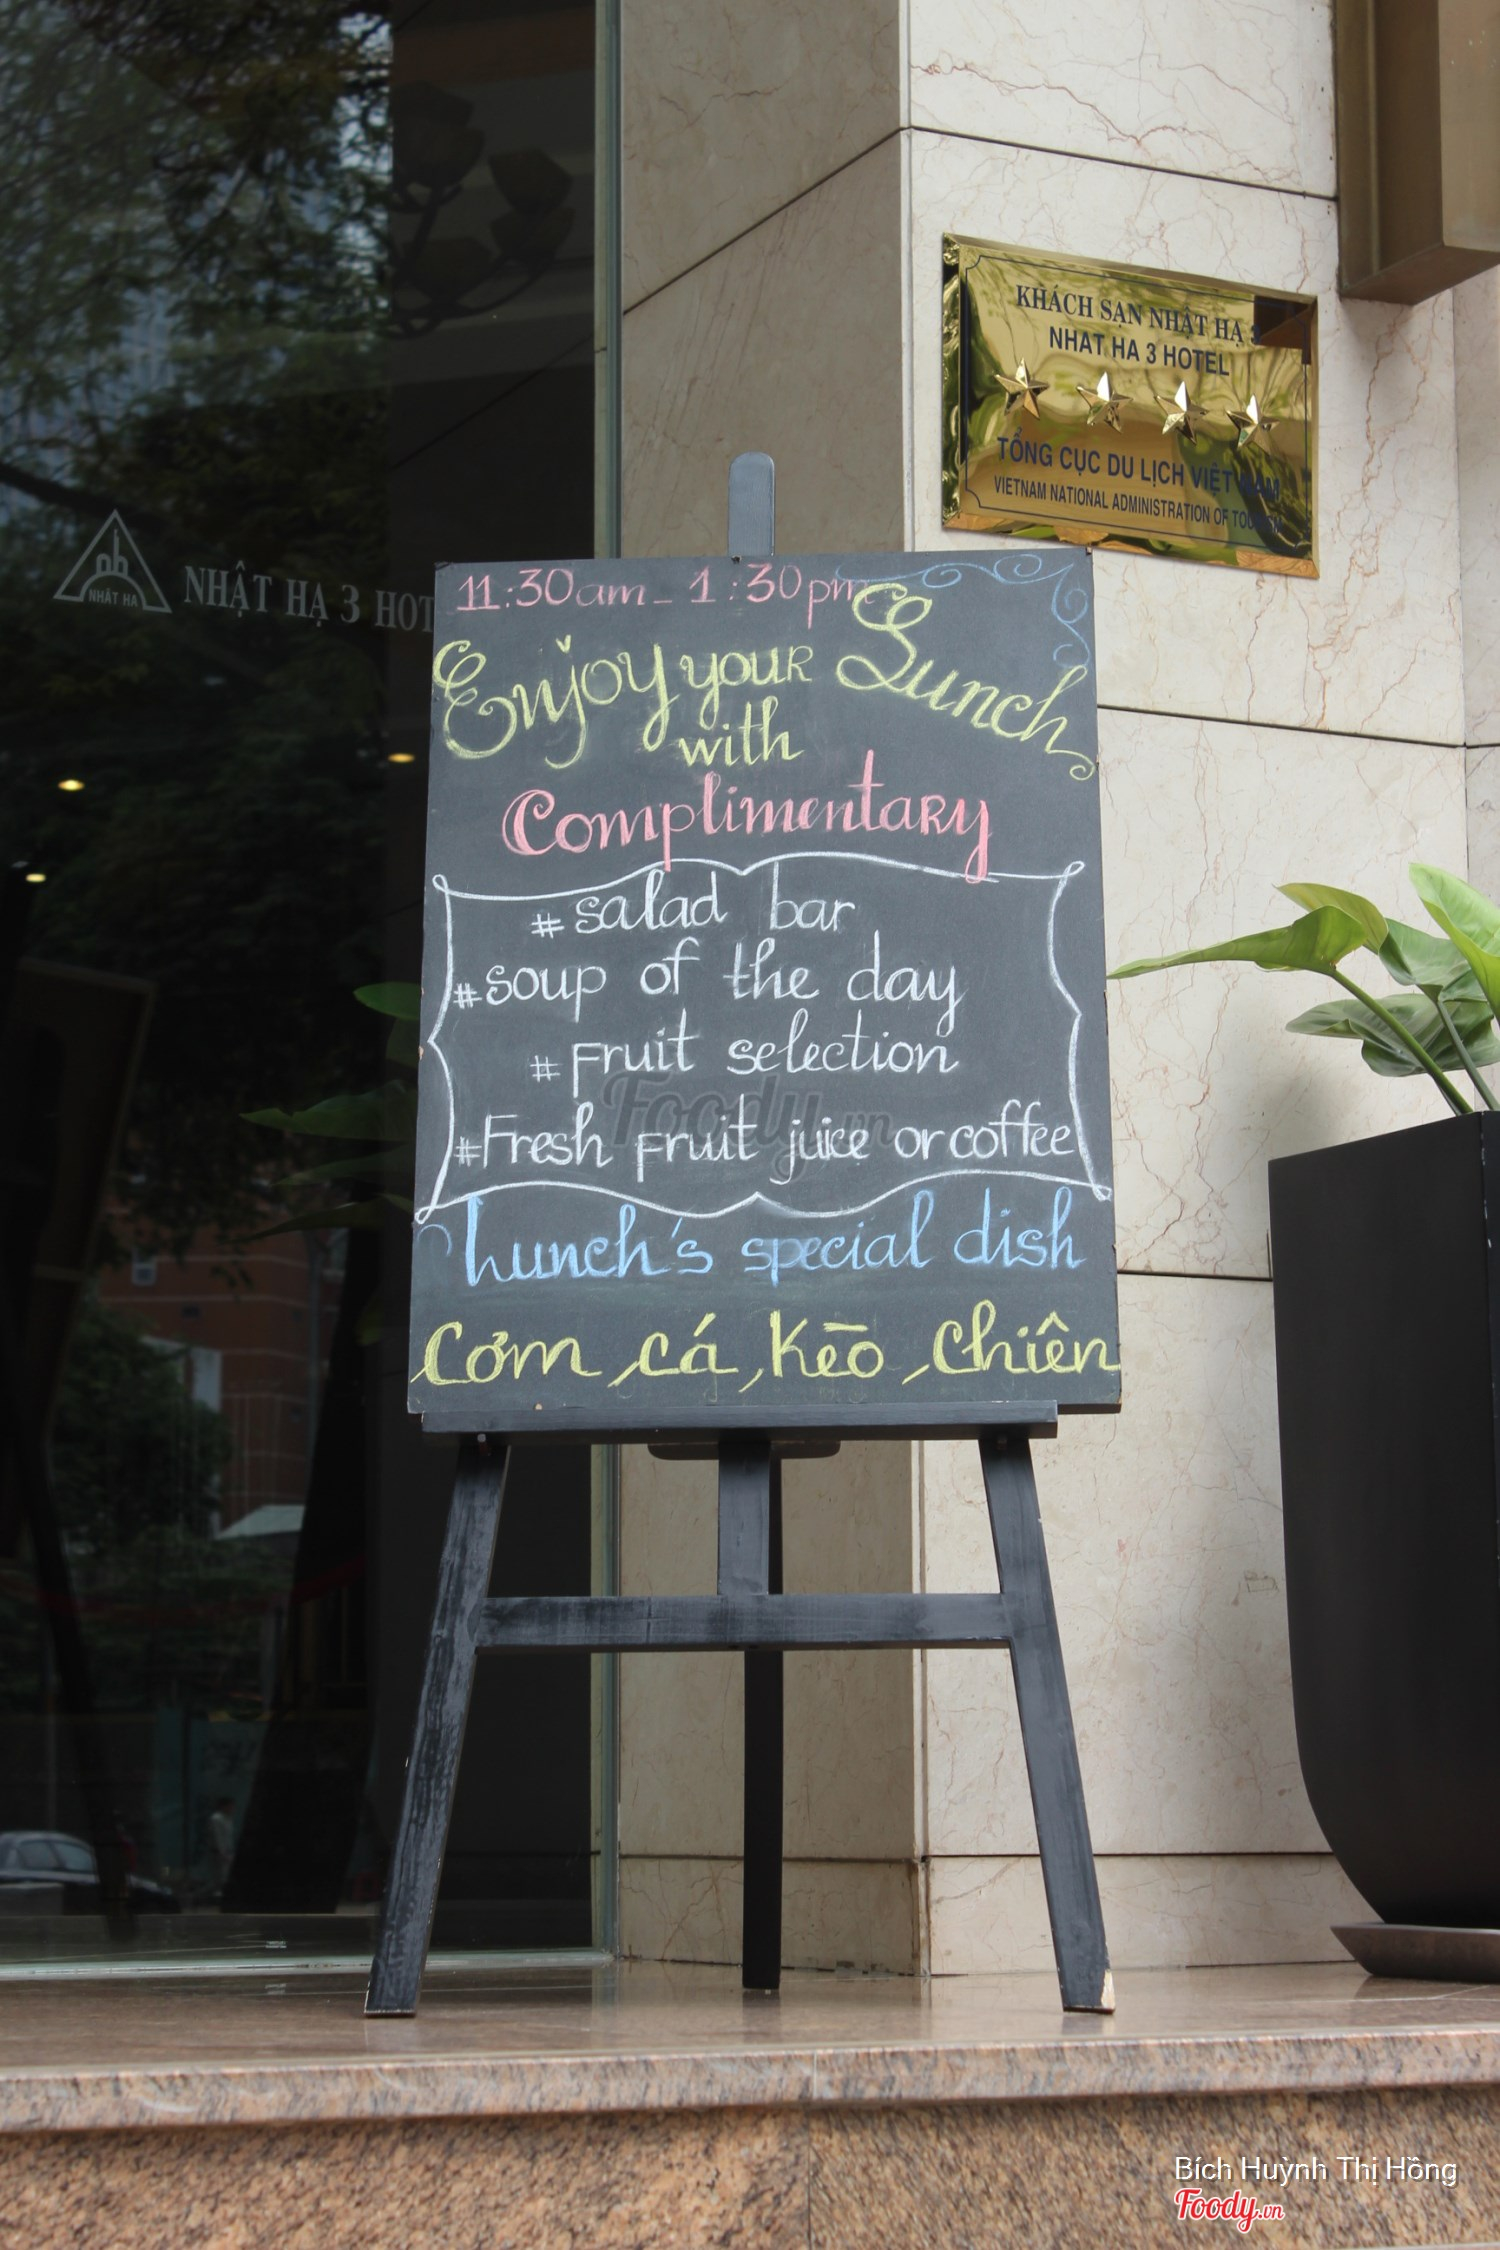 KHÁCH SẠN NHẬT HẠ 3
NHAT HA 3 HOTEL
TỔNG CỤC DU LỊCH VIỆT NAM
VIETNAM NATIONAL ADMINISTRATION OF TOURISM
NHẬT HẠ
NHẬT HẠ 3 HOT
11:30am - 1:30pm
Enjoy your Lunch
with
Complimentary
# salad bar
# soup of the day
# Fruit selection
# Fresh Fruit juice or coffee
Lunch's special dish
Cơm, cá, Kèo, Chiên
Foody.vn
Bích Huỳnh Thị Hồng
Foody.vn